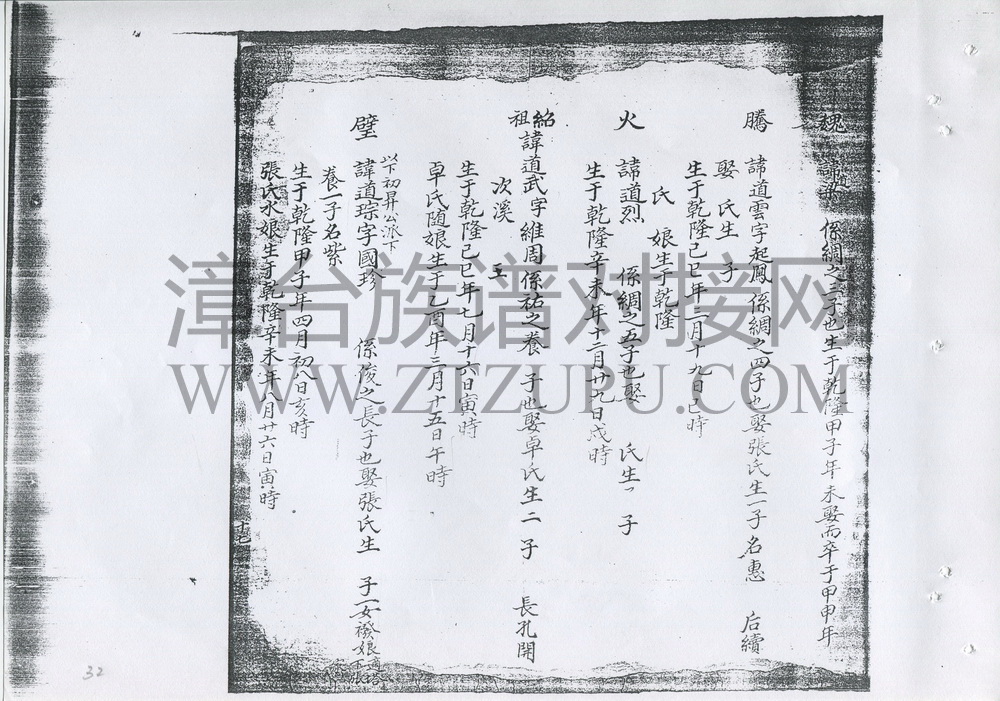 魏 諱 係綢之三子也生于乾隆甲子年未娶而卒于甲申年
騰 諱道雲字起鳳係綢之四子也娶張氏生一子名惠 后續
娶 氏生 子
生于乾隆己巳年二月十九日巳時
氏 娘生于乾隆
火 諱道烈 係綢之五子也娶 氏生 子
生于乾隆辛未年十二月廿九日戌時
紹祖 諱道武字維周係祐之養 子也娶卓氏生二子 長孔開
次溪 玉
生于乾隆己巳年七月十六日寅時
卓氏随娘生于乙酉年三月十五日午時
以下初昇公派下
璧 諱道琮字國珍 係俊之長子也娶張氏生 子一女 娘
養一子名紫
生于乾隆甲子年四月初八日亥時
張氏水娘生于乾隆辛未年八月廿六日寅時
十七
32
漳台族谱对接网
WWW.ZTZUPU.COM